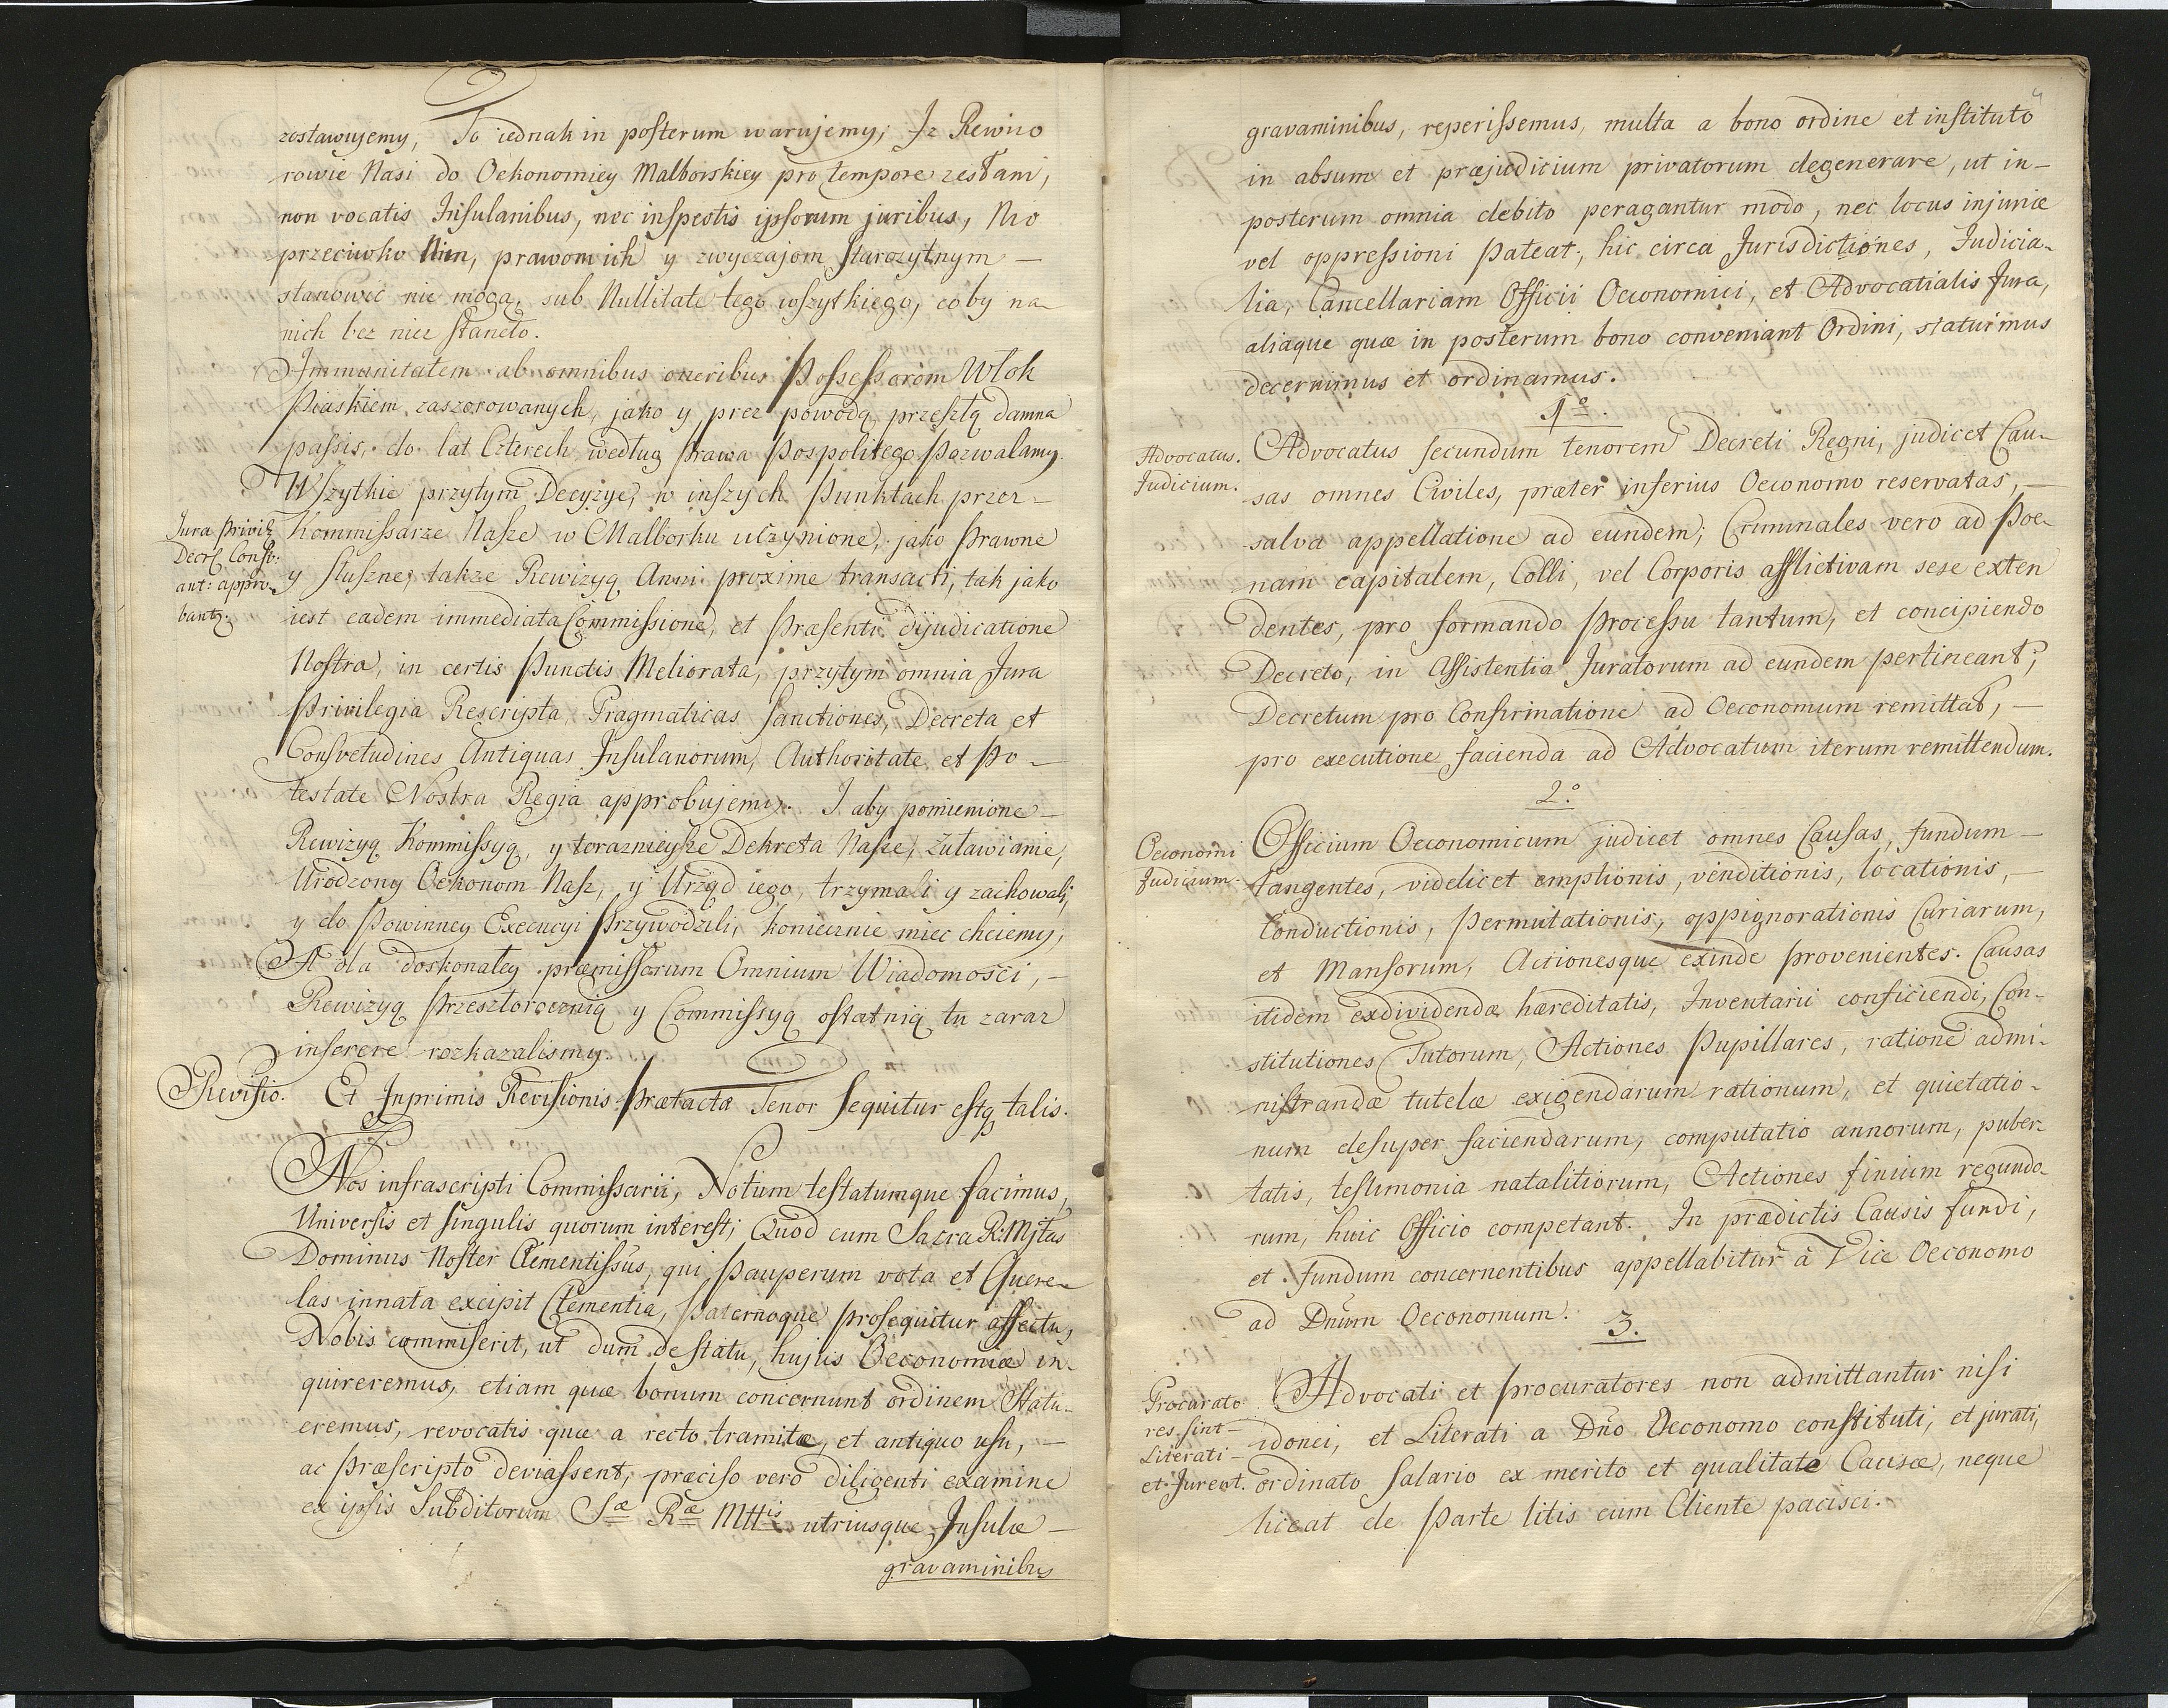 zostawujemy, To iednak in posterum warujemy; Jz Rewizo
rowie Nasi do Oekonomiey Malborskiey pro tempore zesłani,
non vocatis Insulanibus, nec inspectis ipsorum juribus, Nic
przeciwko Nim, prawom ich y zwyczajom starozytnym —
stanowic nie mogą, sub Nullitate tego wszytkiego, coby na
nich bez nich staneło.
Immunitatem ab omnibus oneribus Possessorom Włok
Piaskiem zaszorowanych, jako y prez powodą przeszłą damna
passis, do lat Czterech według Prawa Pospolitego Pozwalamy.
Wszytkie przytym Decyzye, w inszych Punktach przez —
Jura Privil:
Decr: Consv:
ant: appro-
bantz.
Kommissarze Nasze w Malborku uczynione, jako Prawne
y słuszne, takze Rewizyą Anni proxime transacti, tak jako
iest eadem immediata Commissione, et Præsenti dijudicatione
Nostra, in certis Punctis Meliorata, przytym omnia Jura
Privilegia Rescripta, Pragmaticas Sanctiones, Decreta et
Consvetudines Antiquas Insulanorum, Authoritate et Po-
testate Nostra Regia approbujemy. I aby pomienione —
Rewizyą Kommissyą, y terazniejsze Dekreta Nasze, Zuławianie,
Urodzony Oekonom Nasz, y Urząd iego, trzymali y zachowali,
y do Powinney Execucyi Przywodzili, koniecznie miec chcemy;
A dla doskonałey præmissorum Omnium Wiadomości, —
Rewizyą Przeszłoroczną y Commissyą ostatnią tu zaraz
inserere rozkazalismy.
Revisio. Et Inprimis Revisionis Prætacta Tenor sequitur estq talis.
Nos infrascripti Commissarii, Notum testatumque facimus,
Universis et singulis quorum interest; Quod cum Sacra R: Mjtas
Dominus Noster Clementissus, qui Pauperum vota et Quere-
las innata excipit Clementia, Paternoque prosequitur affectu,
Nobis commiserit, ut dum de statu, hujus Oeconomiæ in-
quireremus, etiam quæ bonum concernunt ordinem Statu-
eremus, revocatis quæ a recto tramite, et antiquo usu, —
ac Præscripto deviassent, præciso vero diligenti examine
ex ipsis Subditorum Sæ Ræ Mttis utriusque Insulæ —
gravaminibus
4
gravaminibus, reperissemus, multa a bono ordine et instituto
in absum et præjudicium privatorum degenerare, ut in-
posterum omnia debito peragantur modo, nec locus injuriæ
vel oppressioni Pateat, hic circa Jurisdictiones, Judicia-
lia, Cancellariam Officii Oeconomici, et Advocatialis Jura,
aliaque quæ in posterum bono conveniant Ordini, statuimus
decernimus et ordinamus.
1º.
Advocatus.
Judicium.
Advocatus secundum tenorem Decreti Regni, judicet Cau-
sas omnes Civiles, præter inferius Oeconomo reservatas, —
salva appellatione ad eundem; Criminales vero ad Poe-
nam capitalem, Colli, vel Corporis afflictivam sese exten
dentes, pro formando Processu tantum, et concipiendo
Decreto, in Assistentia Juratorum ad eundem pertineant;
Decretum pro Confirmatione ad Oeconomum remittat, —
pro executione facienda ad Advocatum iterum remittendum.
2º
Oeconomi
Judicium.
Officium Oeconomicum judicet omnes Causas, fundum —
tangentes, videlicet emptionis, venditionis, locationis, —
Conductionis, Permutationis, oppignorationis Curiarum,
et Mansorum, Actionesque exinde provenientes. Causas
itidem exdividendæ hæreditatis, Inventarii conficiendi, Con-
stitutiones Tutorum, Actiones Pupillares, ratione admi-
nistrandæ tutelæ exigendarum rationum, et quietatio-
num desuper faciendarum, computatio annorum, puber-
tatis, testimonia natalitiorum, Actiones finium regundo-
rum, huic Officio competant. In prædictis Causis fundi,
et fundum concernentibus appellabitur à Vice Oeconomo
ad Dnum Oeconomum.
3.
Procurato
res sint —
Literati —
et Jurent.
Advocati et procuratores non admittantur nisi
idonei, et Literati a Dno Oeconomo constituti, et jurati,
ordinato Salario ex merito et qualitate Causæ, neque
liceat de Parte litis cum Cliente pacisci.